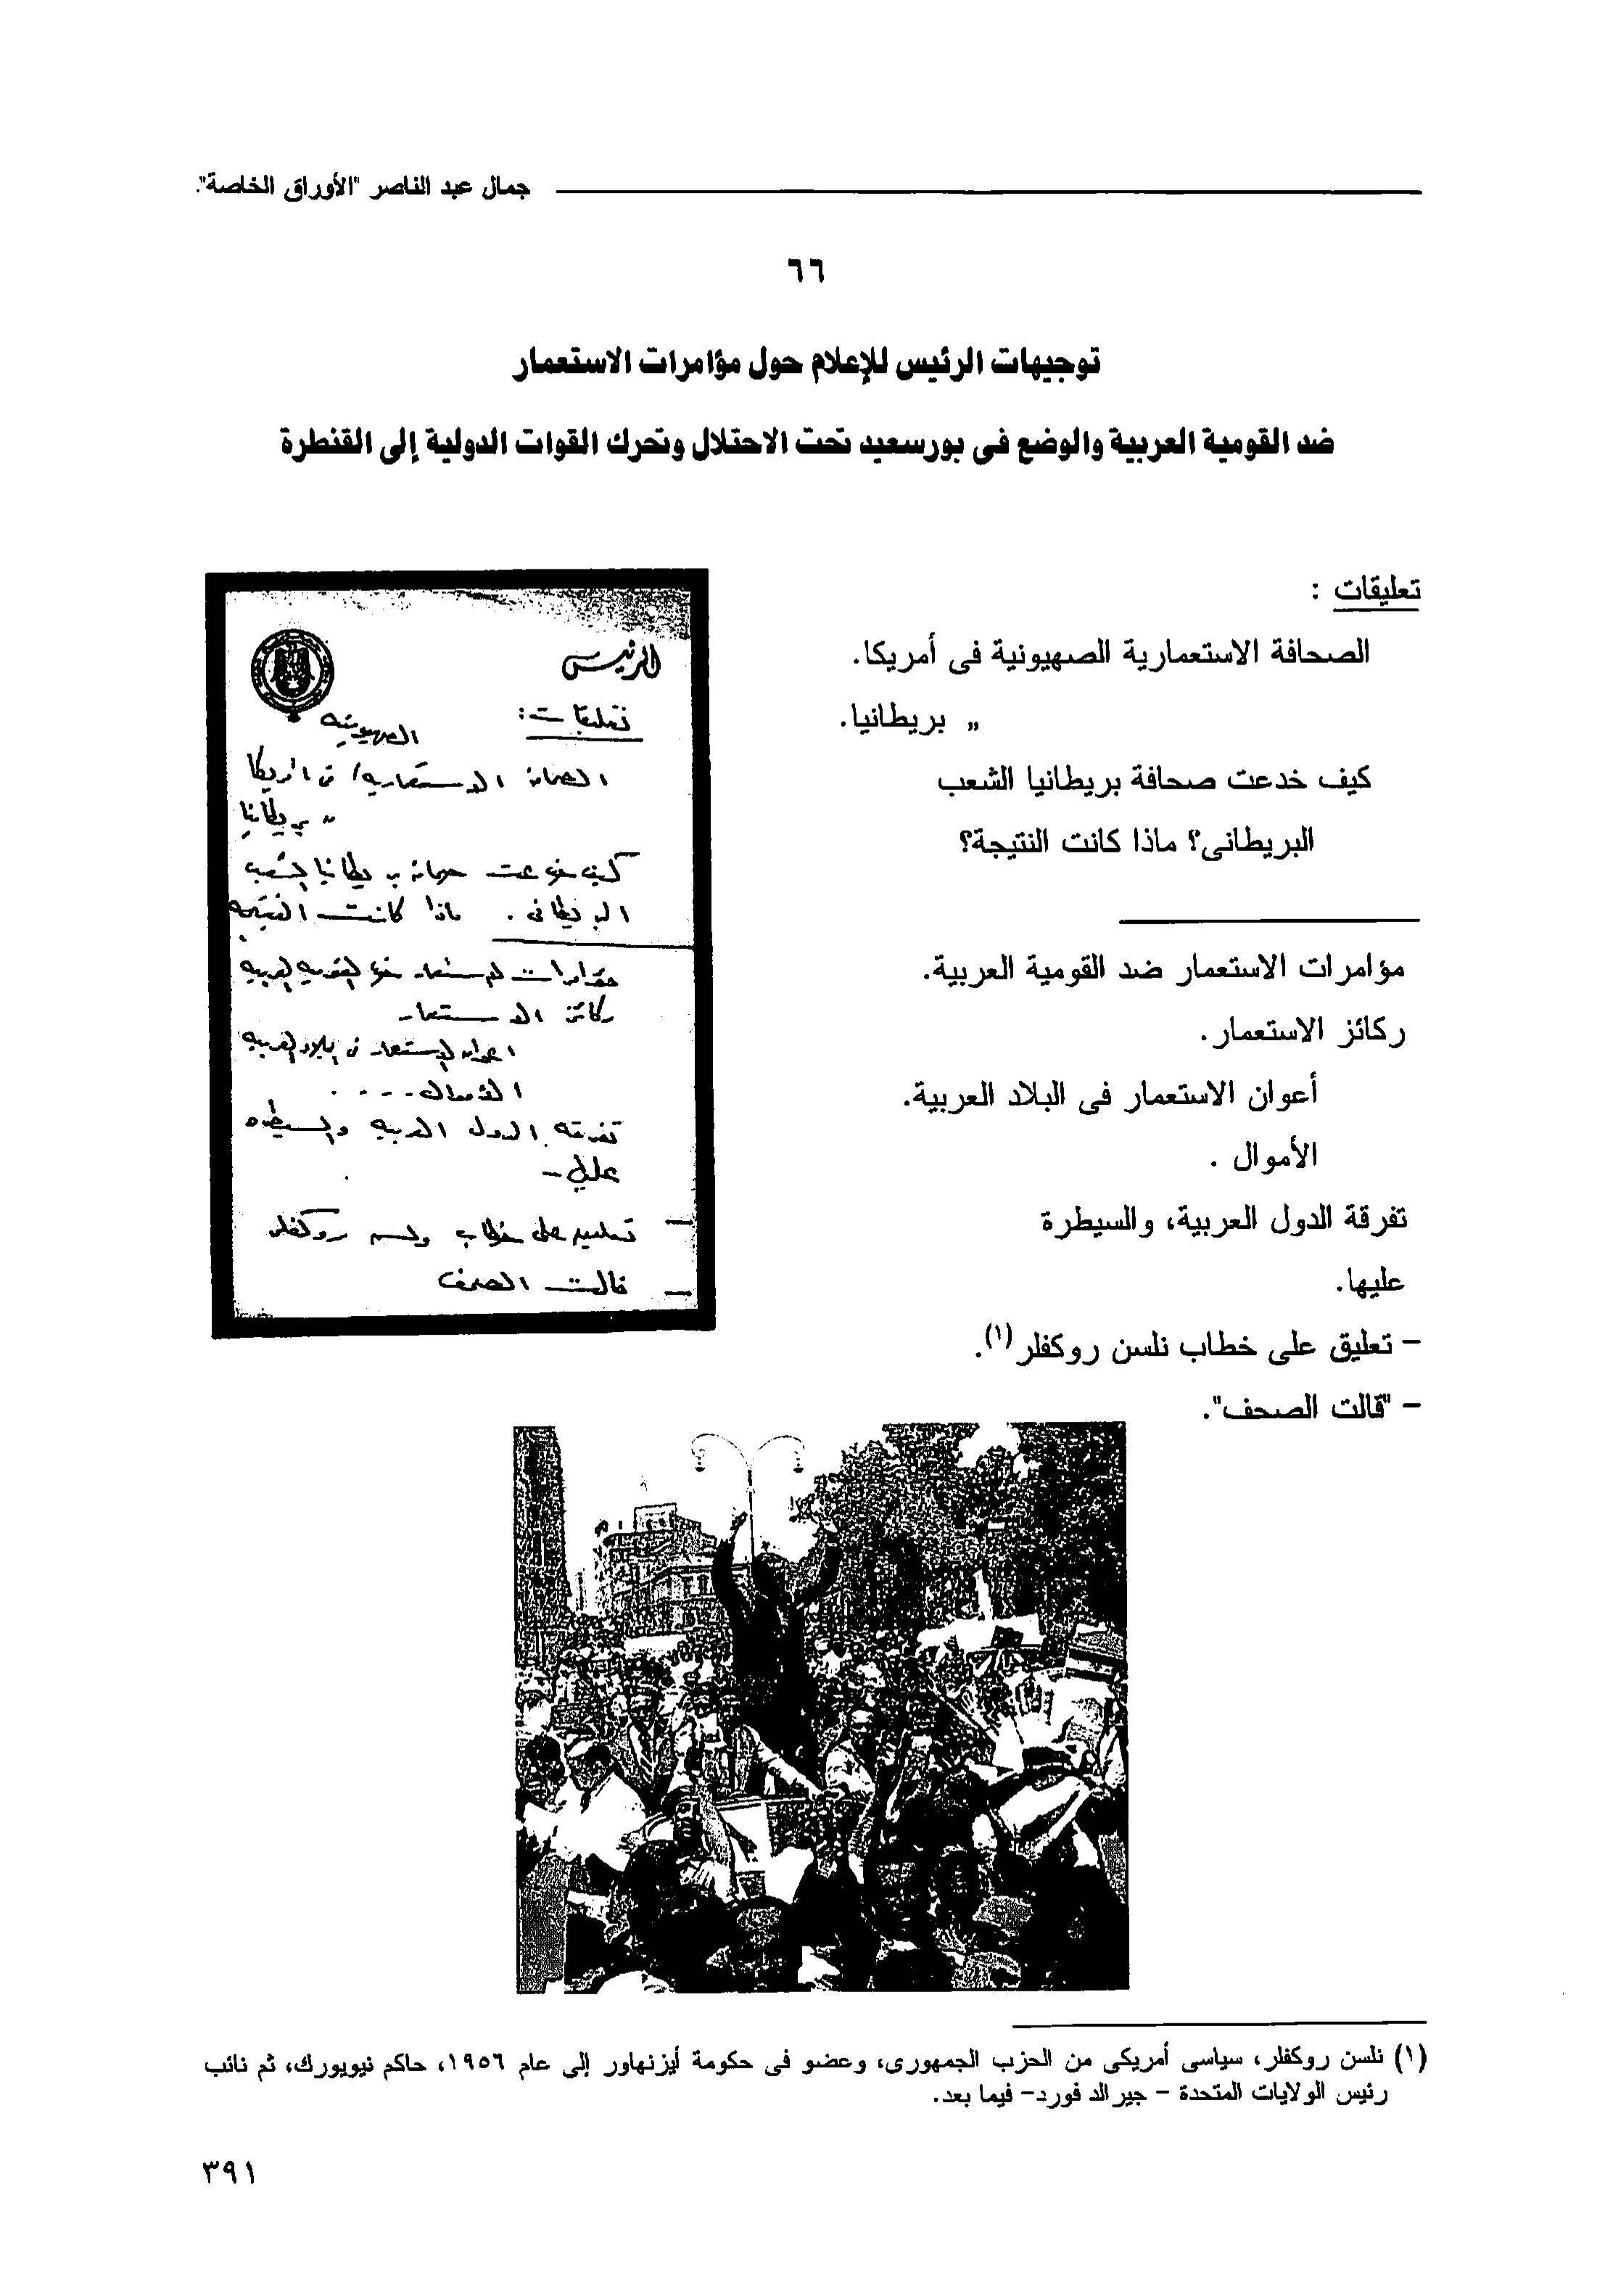 جمال عبد الناصر "الأوراق الخاصة".
٦٦
توجيهات الرئيس للإعلام حول مؤامرات الاستعمار
ضد القومية العربية والوضع فى بورسعيد تحت الاحتلال وتحرك القوات الدولية إلى القنطرة
تعليقات :
الصحافة الاستعمارية الصهيونية فى أمريكا.
,, بريطانيا.
كيف خدعت صحافة بريطانيا الشعب
البريطانى؟ ماذا كانت النتيجة؟
مؤامرات الاستعمار ضد القومية العربية.
ركائز الاستعمار.
أعوان الاستعمار فى البلاد العربية.
الأموال .
تفرقة الدول العربية، والسيطرة
عليها.
– تعليق على خطاب نلسن روكفلر(١).
– "قالت الصحف".
الرئيس
تعليقات :
الصهيونيه
الصحافة الاستعماريه / فى امريكا
,, بريطانيا
كيف خدعت صحافة بريطانيا الشعب
البريطانى . ماذا كانت النتيجه
مؤامرات الاستعمار ضد القوميه العربيه
ركائز الاستعمار
اعوان الاستعمار فى البلاد العربيه
الاموال . . . .
تفرقة الدول العربيه والسيطره
عليها –
– تعليق على خطاب نلسن روكفلر
– قالت الصحف
(١) نلسن روكفلر، سياسى أمريكى من الحزب الجمهورى، وعضو فى حكومة أيزنهاور إلى عام ١٩٥٦، حاكم نيويورك، ثم نائب
رئيس الولايات المتحدة – جيرالد فورد– فيما بعد.
٣٩١